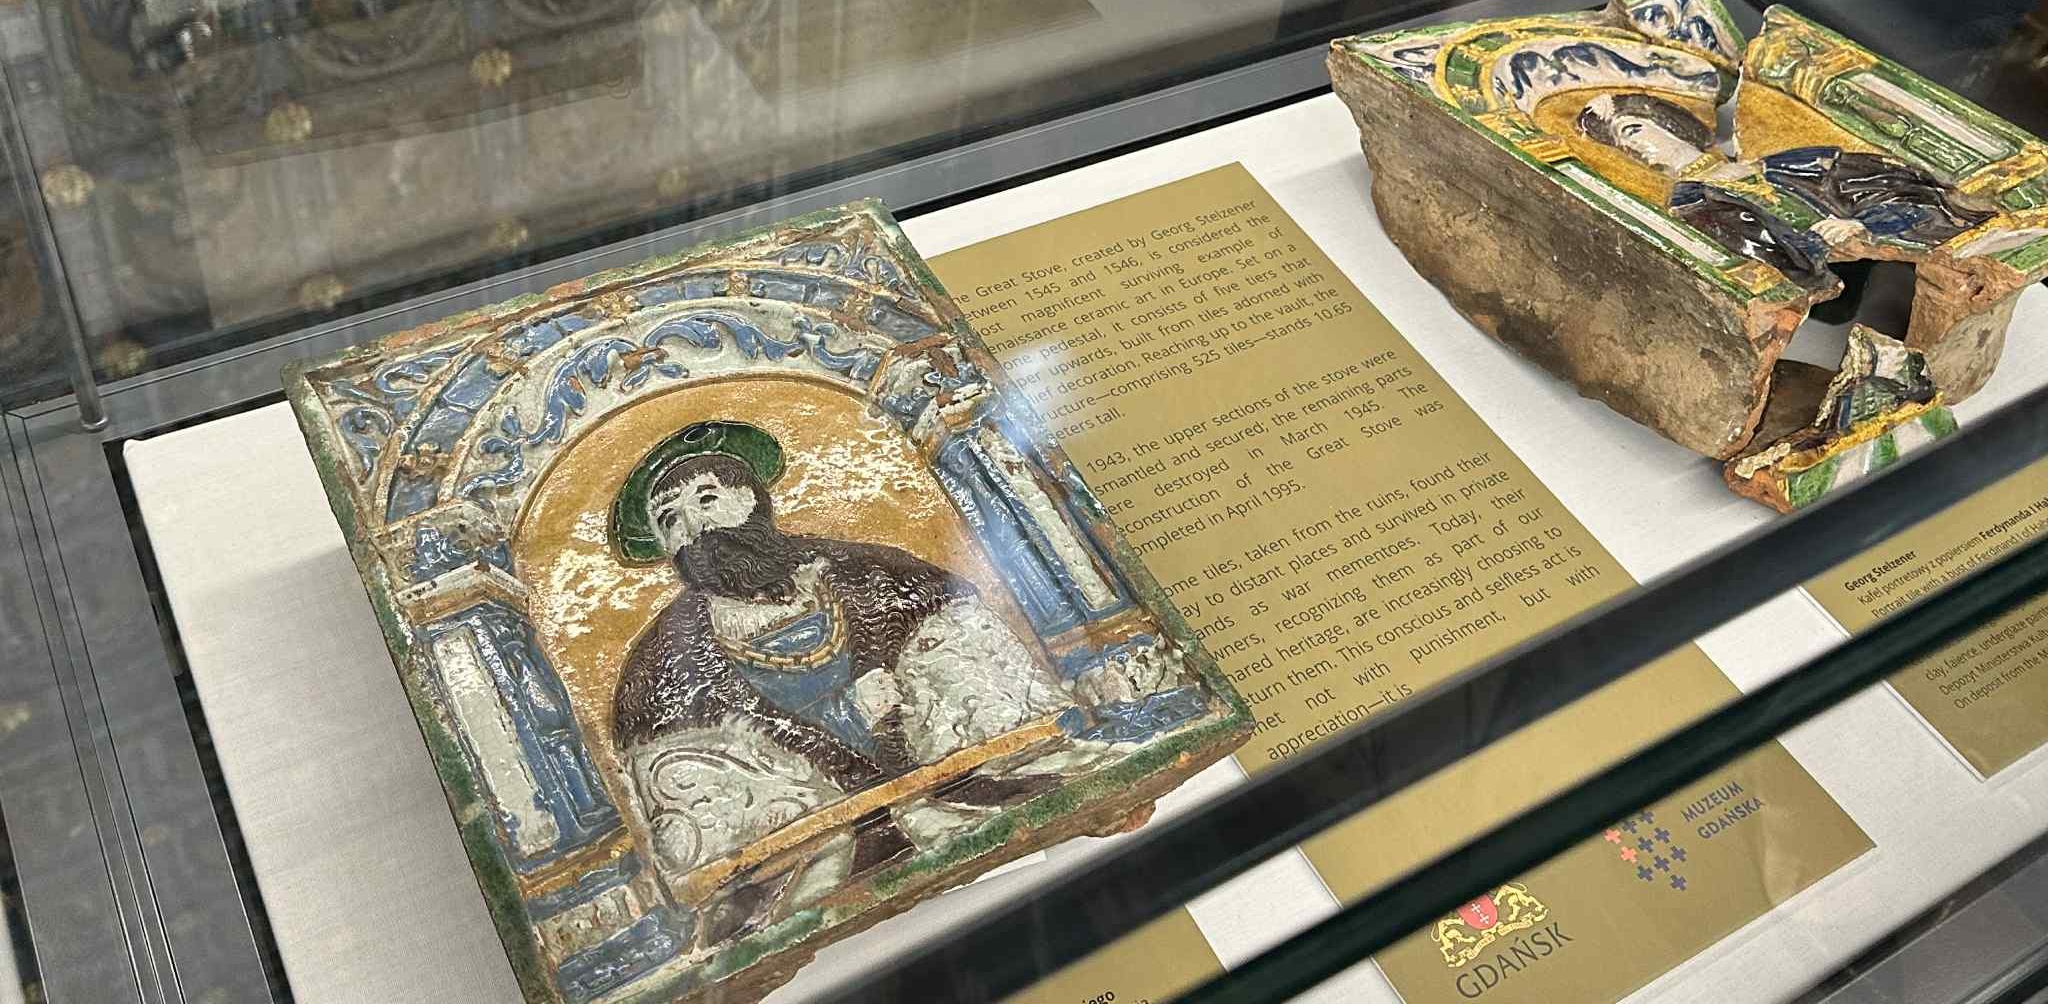 Great Stove, created by Georg Stelzener
1545 and 1546, is considered the
magnificent surviving example of
ceramic art in Europe. Set on a
pedestal, it consists of five tiers that
upwards, built from tiles adorned with
decoration. Reaching up to the vault, the
comprising 525 tiles—stands 10.65
tall.
1943, the upper sections of the stove were
and secured; the remaining parts
destroyed in March 1945. The
of the Great Stove was
in April 1995.
tiles, taken from the ruins, found their
to distant places and survived in private
as war mementoes. Today, their
recognizing them as part of our
heritage, are increasingly choosing to
them. This conscious and selfless act is
not with punishment, but with
appreciation—it is
MUZEUM
GDAŃSKA
GDAŃSK
Georg Stelzener
Kafel portretowy z popiersiem Ferdynanda I
Portrait tile with a bust of Ferdinand I of
clay, faience, underglaze
Depozyt Ministerstwa
On deposit from the